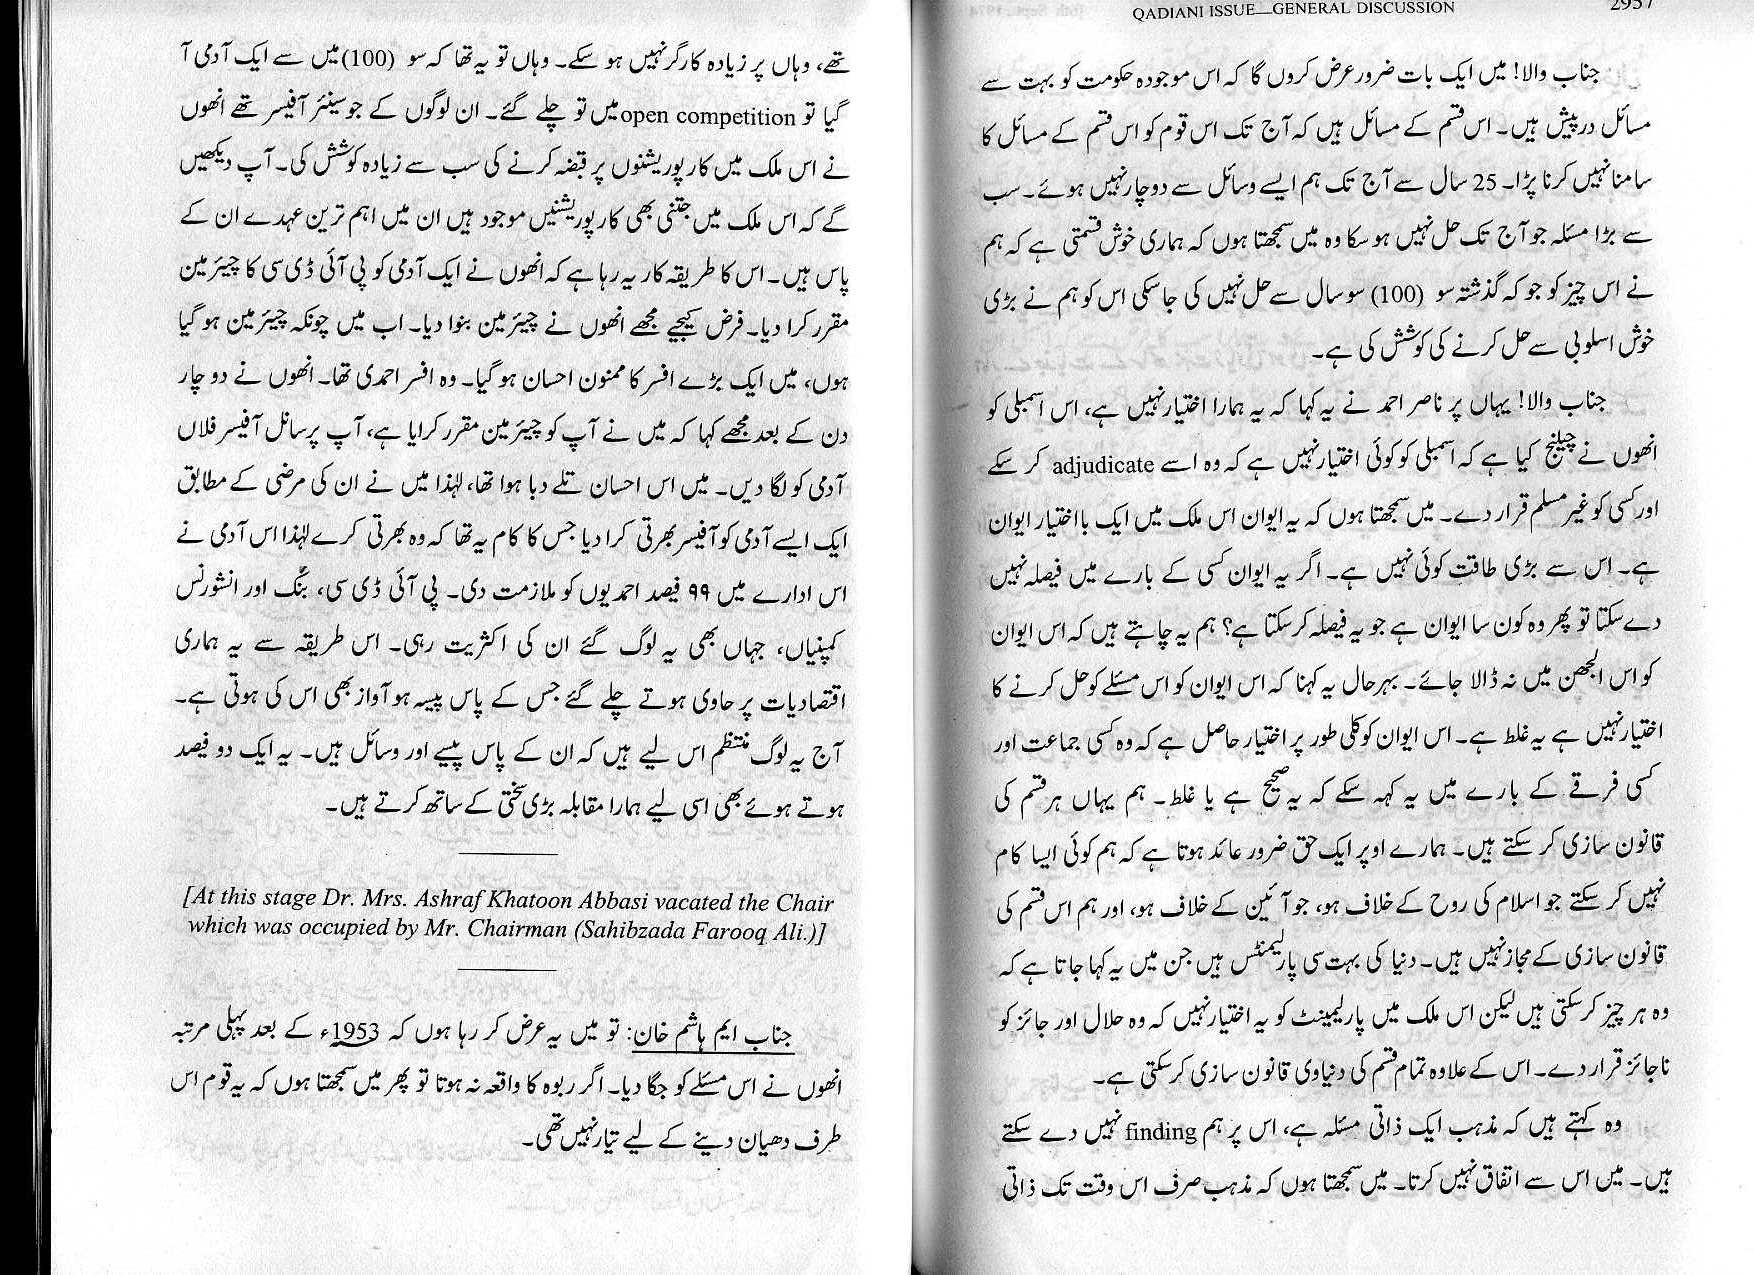 تھے، وہاں پر زیادہ کارگر نہیں ہو سکے۔ وہاں تو یہ تھا کہ سو (100) میں سے ایک آدمی آ
گیا تو open competition میں تو چلے گئے۔ ان لوگوں کے جو سینئر آفیسر تھے انھوں
نے اس ملک میں کارپوریشنوں پر قبضہ کرنے کی سب سے زیادہ کوشش کی۔ آپ دیکھیں
گے کہ اس ملک میں جتنی بھی کارپوریشنیں موجود ہیں ان میں اہم ترین عہدے ان کے
پاس ہیں۔ اس کا طریقہ کار یہ رہا ہے کہ انھوں نے ایک آدمی کو پی آئی ڈی سی کا چیئرمین
مقرر کرا دیا۔ فرض کیجیے مجھے انھوں نے چیئرمین بنوا دیا۔ اب میں چونکہ چیئرمین ہو گیا
ہوں، میں ایک بڑے افسر کا ممنون احسان ہو گیا۔ وہ افسر احمدی تھا۔ انھوں نے دو چار
دن کے بعد مجھے کہا کہ میں نے آپ کو چیئرمین مقرر کرایا ہے، آپ پرسانل آفیسر فلاں
آدمی کو لگا دیں۔ میں اس احسان تلے دبا ہوا تھا، لہٰذا میں نے ان کی مرضی کے مطابق
ایک ایسے آدمی کو آفیسر بھرتی کرا دیا جس کا کام یہ تھا کہ وہ بھرتی کرے لہٰذا اس آدمی نے
اس ادارے میں ۹۹ فیصد احمدیوں کو ملازمت دی۔ پی آئی ڈی سی، بنک اور انشورنس
کمپنیاں، جہاں بھی یہ لوگ گئے ان کی اکثریت رہی۔ اس طریقہ سے یہ ہماری
اقتصادیات پر حاوی ہوتے چلے گئے جس کے پاس پیسہ ہو آواز بھی اس کی ہوتی ہے۔
آج یہ لوگ منتظم اس لیے ہیں کہ ان کے پاس پیسے اور وسائل ہیں۔ یہ ایک دو فیصد
ہوتے ہوئے بھی اسی لیے ہمارا مقابلہ بڑی سختی کے ساتھ کرتے ہیں۔
[At this stage Dr. Mrs. Ashraf Khatoon Abbasi vacated the Chair
which was occupied by Mr. Chairman (Sahibzada Farooq Ali.)]
جناب ایم ہاشم خان: تو میں یہ عرض کر رہا ہوں کہ 1953ء کے بعد پہلی مرتبہ
انھوں نے اس مسئلے کو جگا دیا۔ اگر ربوہ کا واقعہ نہ ہوتا تو پھر میں سمجھتا ہوں کہ یہ قوم اس
طرف دھیان دینے کے لیے تیار نہیں تھی۔
QADIANI ISSUE—GENERAL DISCUSSION 2957
جناب والا! میں ایک بات ضرور عرض کروں گا کہ اس موجودہ حکومت کو بہت سے
مسائل درپیش ہیں۔ اس قسم کے مسائل ہیں کہ آج تک اس قوم کو اس قسم کے مسائل کا
سامنا نہیں کرنا پڑا۔ 25 سال سے آج تک ہم ایسے وسائل سے دوچار نہیں ہوئے۔ سب
سے بڑا مسئلہ جو آج تک حل نہیں ہو سکا وہ میں سمجھتا ہوں کہ ہماری خوش قسمتی ہے کہ ہم
نے اس چیز کو جو کہ گذشتہ سو (100) سو سال سے حل نہیں کی جا سکی اس کو ہم نے بڑی
خوش اسلوبی سے حل کرنے کی کوشش کی ہے۔
جناب والا! یہاں پر ناصر احمد نے یہ کہا کہ یہ ہمارا اختیار نہیں ہے، اس اسمبلی کو
انھوں نے چیلنج کیا ہے کہ اسمبلی کو کوئی اختیار نہیں ہے کہ وہ اسے adjudicate کر سکے
اور کسی کو غیر مسلم قرار دے۔ میں سمجھتا ہوں کہ یہ ایوان اس ملک میں ایک بااختیار ایوان
ہے۔ اس سے بڑی طاقت کوئی نہیں ہے۔ اگر یہ ایوان کسی کے بارے میں فیصلہ نہیں
دے سکتا تو پھر وہ کون سا ایوان ہے جو یہ فیصلہ کر سکتا ہے؟ ہم یہ چاہتے ہیں کہ اس ایوان
کو اس الجھن میں نہ ڈالا جائے۔ بہرحال یہ کہنا کہ اس ایوان کو اس مسئلے کو حل کرنے کا
اختیار نہیں ہے یہ غلط ہے۔ اس ایوان کو کلی طور پر اختیار حاصل ہے کہ وہ کسی جماعت اور
کسی فرقے کے بارے میں یہ کہہ سکے کہ یہ صحیح ہے یا غلط۔ ہم یہاں ہر قسم کی
قانون سازی کر سکتے ہیں۔ ہمارے اوپر ایک حق ضرور عائد ہوتا ہے کہ ہم کوئی ایسا کام
نہیں کر سکتے جو اسلام کی روح کے خلاف ہو، جو آئین کے خلاف ہو، اور ہم اس قسم کی
قانون سازی کے مجاز نہیں ہیں۔ دنیا کی بہت سی پارلیمنٹس ہیں جن میں یہ کہا جاتا ہے کہ
وہ ہر چیز کر سکتی ہیں لیکن اس ملک میں پارلیمینٹ کو یہ اختیار نہیں کہ وہ حلال اور جائز کو
ناجائز قرار دے۔ اس کے علاوہ تمام قسم کی دنیاوی قانون سازی کر سکتی ہے۔
وہ کہتے ہیں کہ مذہب ایک ذاتی مسئلہ ہے، اس پر ہم finding نہیں دے سکتے
ہیں۔ میں اس سے اتفاق نہیں کرتا۔ میں سمجھتا ہوں کہ مذہب صرف اس وقت تک ذاتی